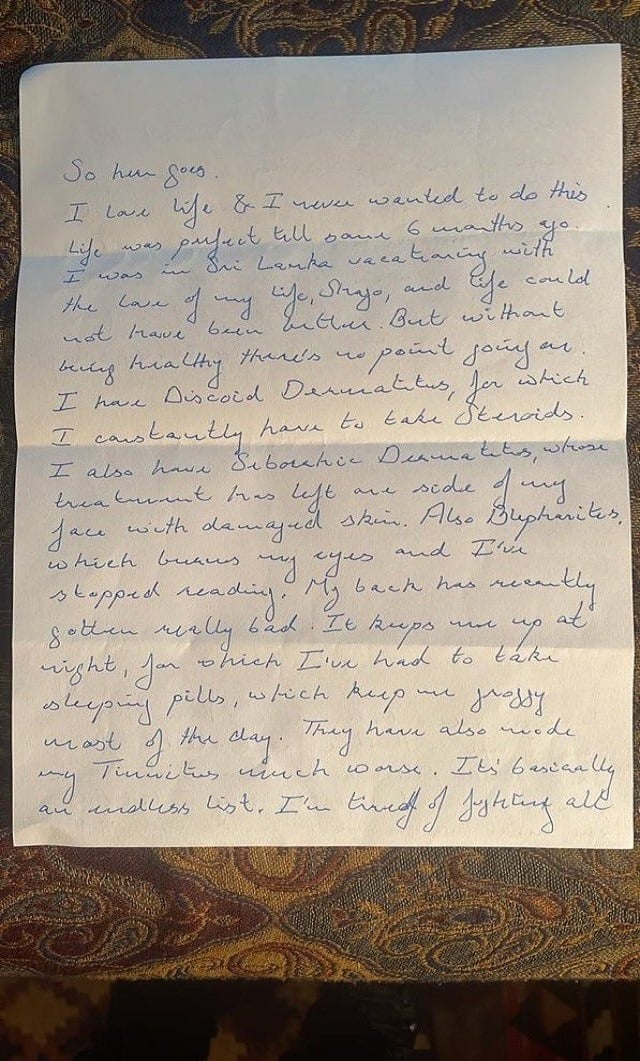 So here goes.
I love life & I never wanted to do this.
Life was perfect till some 6 months ago.
I was in Sri Lanka vacationing with
the love of my life, and life could
not have been better. But without
being healthy there's no point going on.
I have Discoid Dermatitus, for which
I constantly have to take Steroids.
I also have Seborhic Dermatitus, whose
treatment has left one side of my
face with damaged skin. Also Blepharites,
which burns my eyes and I've
stopped reading. My back has recently
gotten really bad. It keeps me up at
night, for which I've had to take
sleeping pills, which keep me groggy
most of the day. They have also made
my Tinnitus much worse. Its' basically
an endless list. I'm tired of fighting all